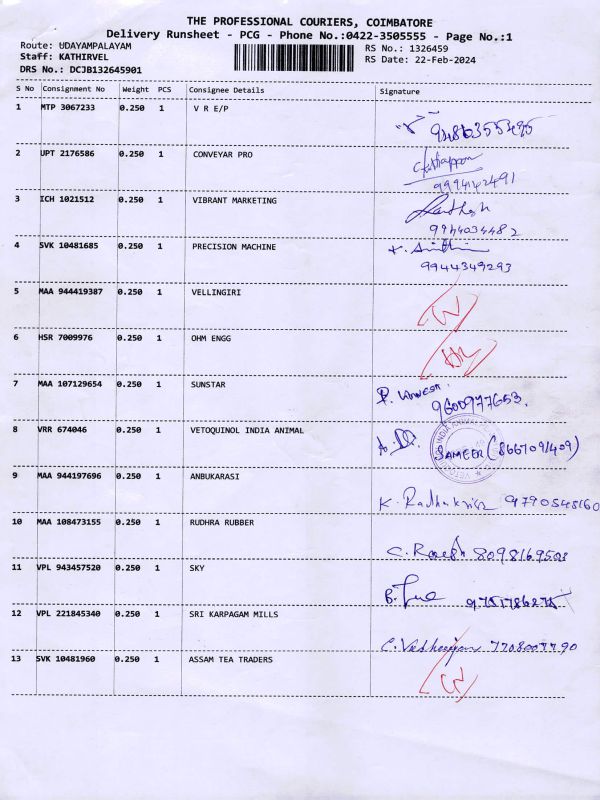 THE PROFESSIONAL COURIERS, COIMBATORE
Delivery Runsheet - PCG - Phone No.:0422-3505555 - Page No.:1
Route: UDAYAMPALAYAM
Staff: KATHIRVEL
DRS No.: DCJB132645901
RS No.: 1326459
RS Date: 22-Feb-2024
S No Consignment No Weight PCS Consignee Details Signature
1 MTP 3067233 0.250 1 V R E/P
2 UPT 2176586 0.250 1 CONVEYAR PRO
9994142491
3 ICH 1021512 0.250 1 VIBRANT MARKETING
9944034482
4 SVK 10481685 0.250 1 PRECISION MACHINE
9944349293
5 MAA 944419387 0.250 1 VELLINGIRI
6 HSR 7009976 0.250 1 OHM ENGG
7 MAA 107129654 0.250 1 SUNSTAR
9600977653.
8 VRR 674046 0.250 1 VETOQUINOL INDIA ANIMAL
SAMEER (8667091409)
9 MAA 944197696 0.250 1 ANBUKARASI
9790548160
10 MAA 108473155 0.250 1 RUDHRA RUBBER
11 VPL 943457520 0.250 1 SKY
12 VPL 221845340 0.250 1 SRI KARPAGAM MILLS
13 SVK 10481960 0.250 1 ASSAM TEA TRADERS